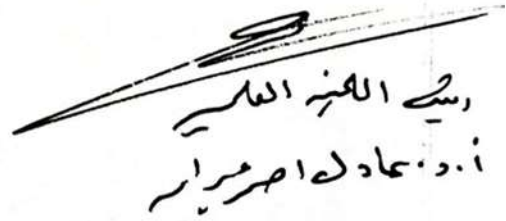 رئيس اللجنه العلميه
أ.د. عادل احمد